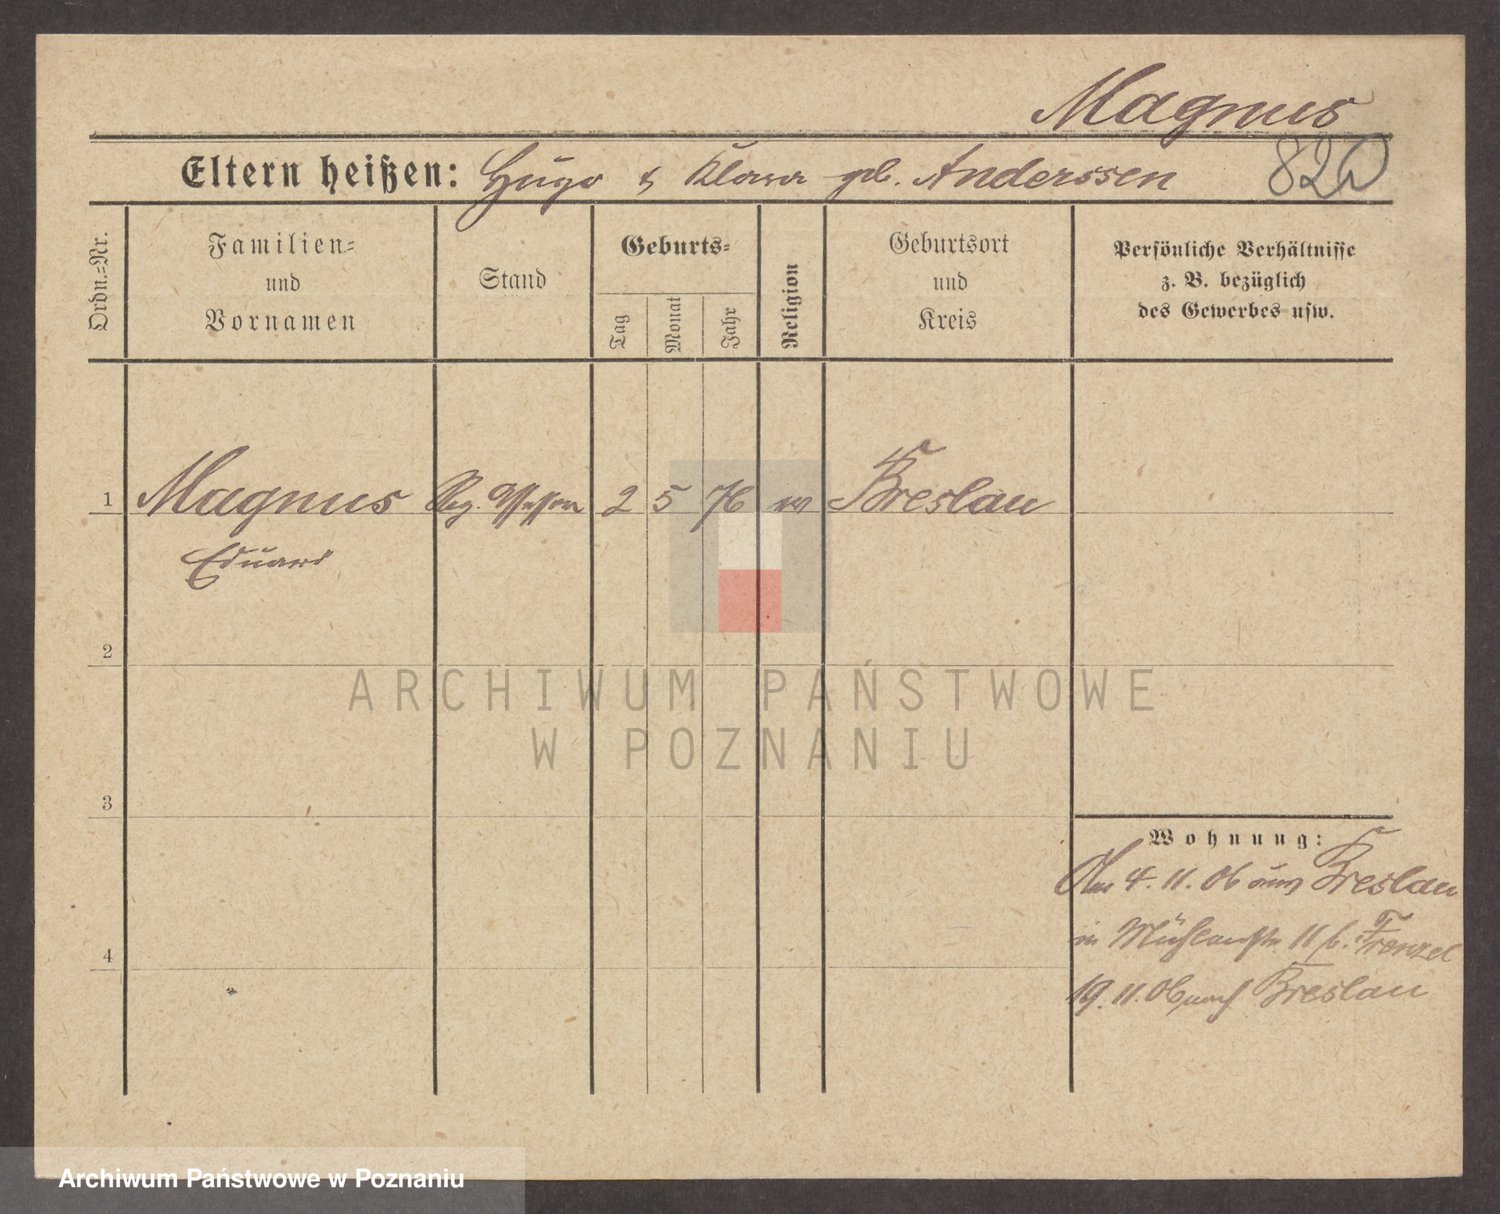 Magnus
820
Eltern heißen: Hugo & Klara geb. Anderssen
Ordn.=Nr.
Familien=
und
Vornamen
Stand
Geburts=
Tag
Monat
Jahr
Religion
Geburtsort
und
Kreis
Persönliche Verhältnisse
z. B. bezüglich
des Gewerbes usw.
1 Magnus Reg. Assessor 2 5 76 Breslau
Eduard
2
3
4
Wohnung:
4. 11. 06 aus Breslau
in Mühlenstr. 11 b. Frenzel
19. 11. 06 nach Breslau
ARCHIWUM PAŃSTWOWE
W POZNANIU
Archiwum Państwowe w Poznaniu